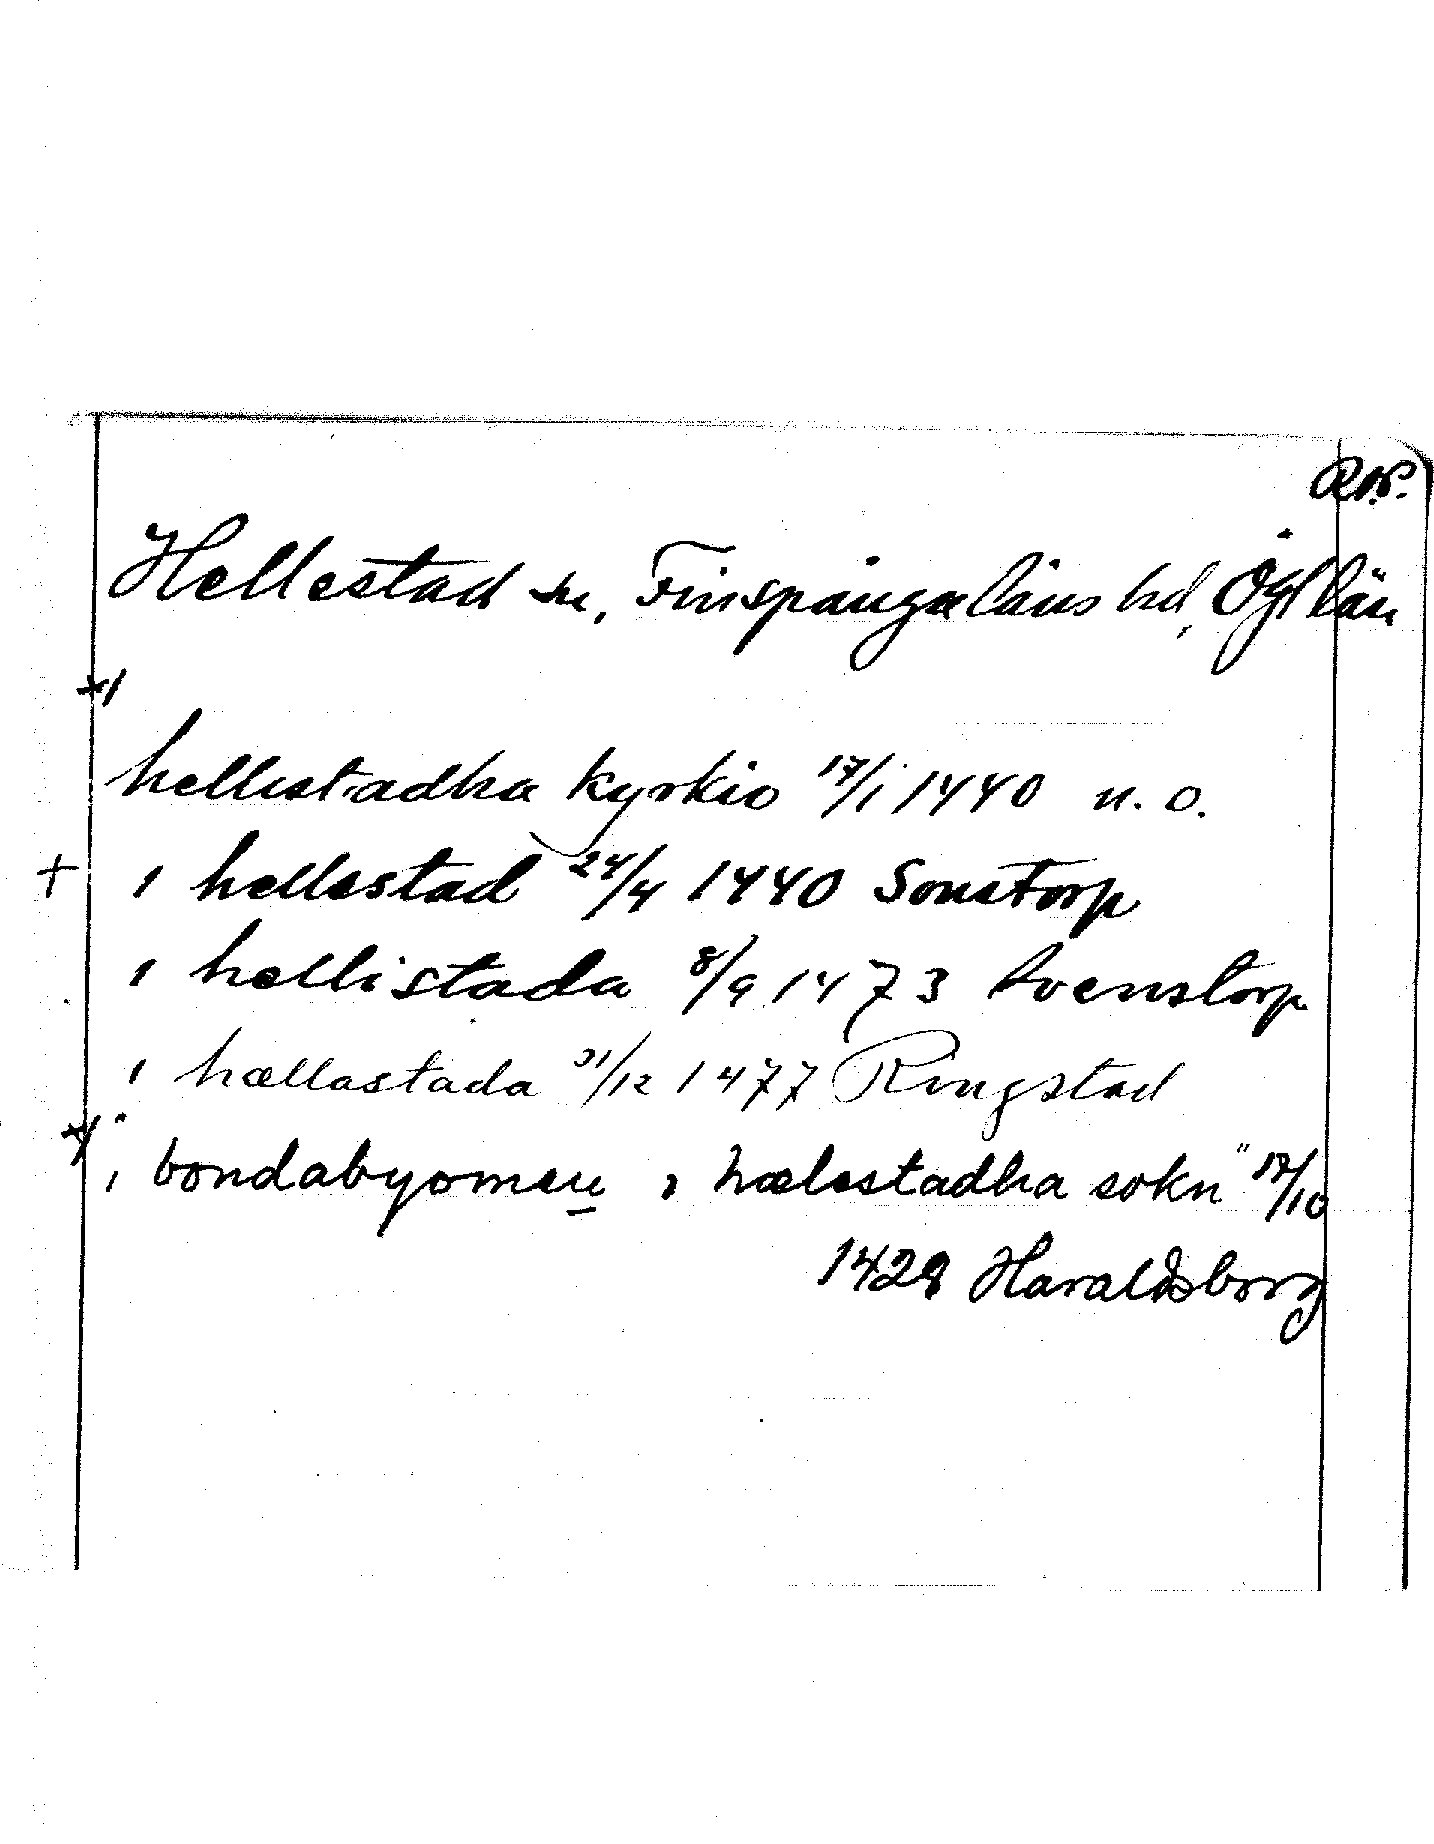 R.A.P.
Hellestad sn, Finspångalän​s hd, Ögl län
x)
hellestadha kyrkio 17/1 1440 n. o.
+ i hellestad 24/4 1440 Sonstorp
i hellistada 8/9 1473 Svenstorp
i hællastada 31/12 1477 Ringstad
x) " i bondabyomen i hælestadha sokn" 17/10
1428 Haraldsborg